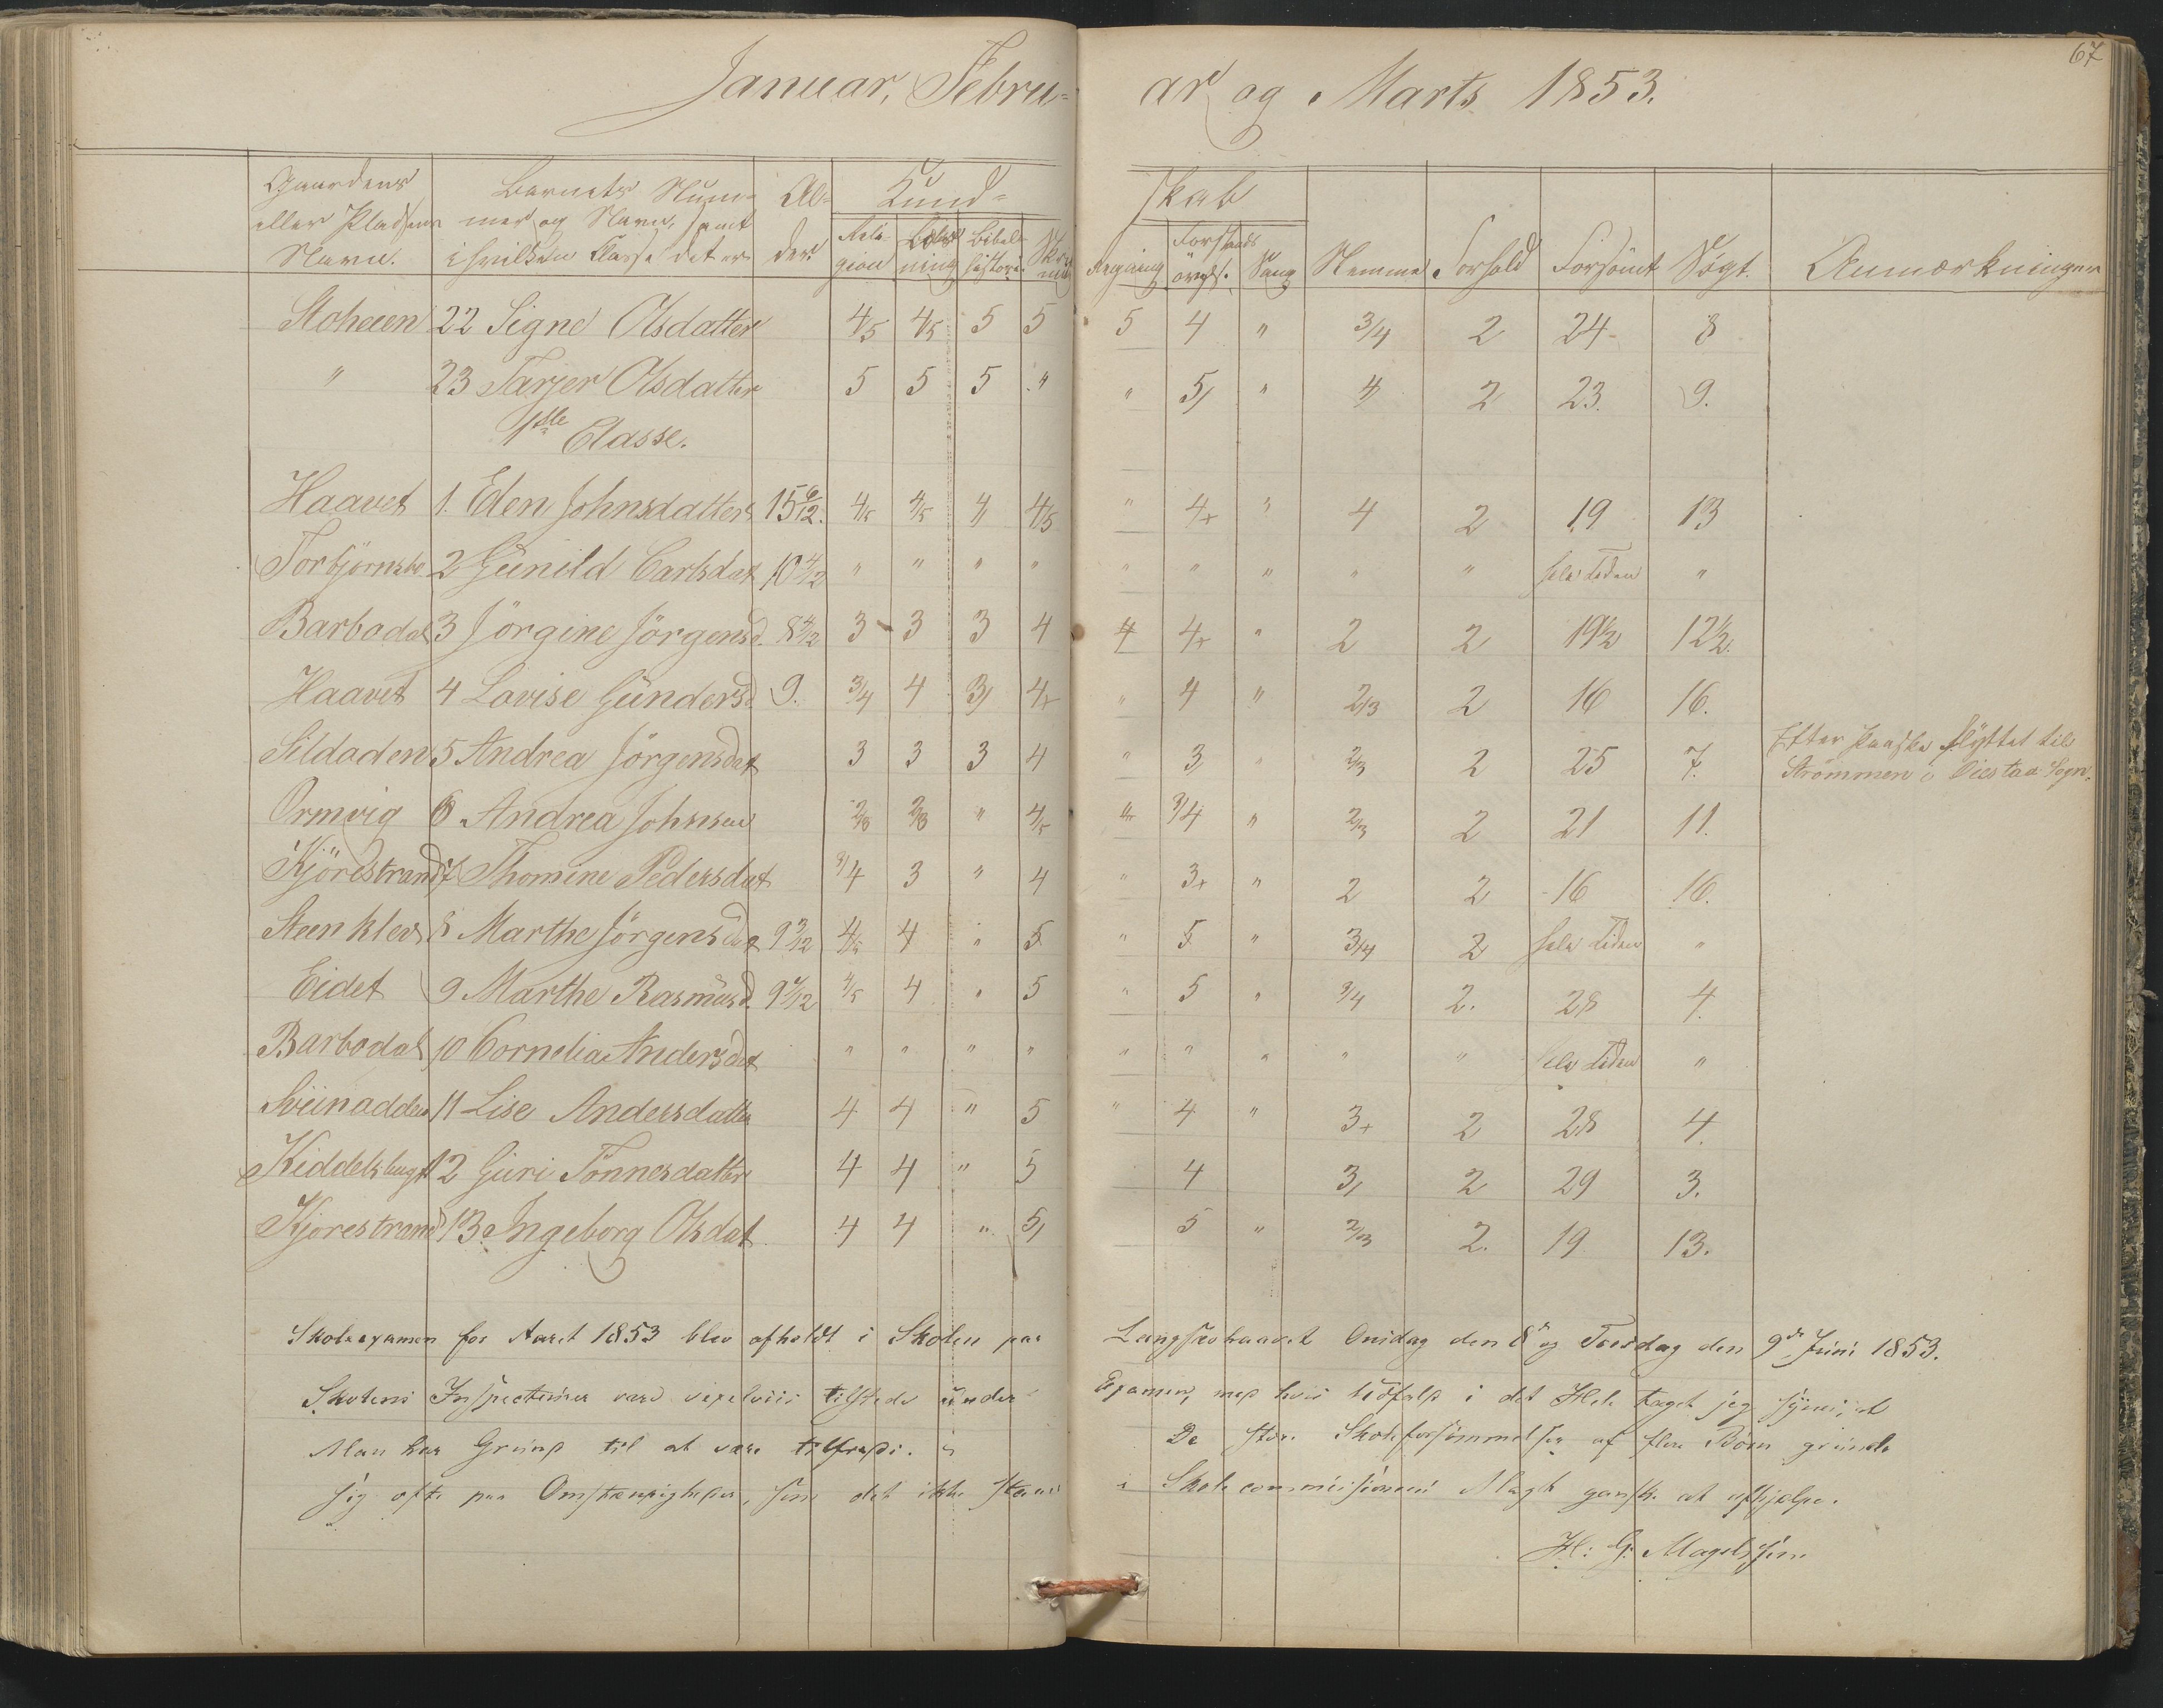 67
Januar, Febru- ar og Marts 1853.
Gaardens eller Pladsens Navn. | Barnets Nummer og Navn, samt i hvilken Classe det er | Alder | Kundskab: Religion | Læsning | Bibelhistorie | Skrivning | Regning | Forstands øvels. | Sang | Nemme | Forhold | Forsømt | Søgt. | Anmærkninger
22 Signe Olsdatter 4/5 4/5 5 5 5 4 " 3/4 2 24 8
" 23 Tarjer Olsdatter 5 5 5 " " 5/ " 4 2 23. 9.
1ste Classe.
Haavet 1. Eden Johnsdatter 15 6/12. 4/5 4/5 4 4/5 " 4+ " 4 2 19 13
Torbjørnsbo 2 Gunild Carlsdat 10 4/12 " " " " " " " " " hele Tiden "
Barbodal 3 Jörgine Jörgensd. 8 4/12 3 3 3 4 4 4+ " 2 2 19 1/2 12 1/2.
Haavet 4 Lovise Gundersd 9. 3/4 4 3/ 4+ " 4 " 2/3 2 16 16.
Sildodden 5 Andrea Jörgensdat 3 3 3 4 " 3 " 2/3 2 25 7. Efter Paaske flyttet til Strömmen i Oiestad Sogn.
Ormvig 6 Andrea Johnsen 2/3 2/3 " 4/5 " 3/4 " 2/3 2 21 11.
Kjörestrand 7 Thomine Pedersdat 3/4 3 " 4 " 3+ " 2 2 16 16.
Steenklev 8 Marthe Jörgensdat 9 3/12 4/5 4 " 5 " 5 " 3/4 2 hele Tiden "
Eidet 9 Marthe Rasmusd. 9 7/12 4/5 4 " 5 " 5 " 3/4 2. 28 4.
Barbodal 10 Cornelia Andersdat " " " " " " " " " hele Tiden "
Sviinodden 11 Lise Andersdatter 4 4 " 5 " 4 " 3+ 2 28 4.
Kiddelsbugt 12 Guri Tönnesdatter 4 4 " 5 4 3/ 2 29 3.
Kjorestrand 13 Ingeborg Olsdat 4 4 " 5/ 5 " 2/3 2. 19 13.
Skoleexamen for Aaret 1853 blev afholdt i Skolen paa Langsævhaavet Onsdag den 8de og Torsdag den 9de Juni 1853.
Skolens Inspecteurer vare vexelviis tilstede under Examen, med hvis Udfald i det Hele taget jeg synes, at
Man har Grund til at være tilfreds. De store Skoleforsömmelser af flere Börn grunde
sig ofte paa Omstændigheder, som det ikke staaer i Skolecommissionens Magt ganske at afhjælpe.
H: G: Magelssen